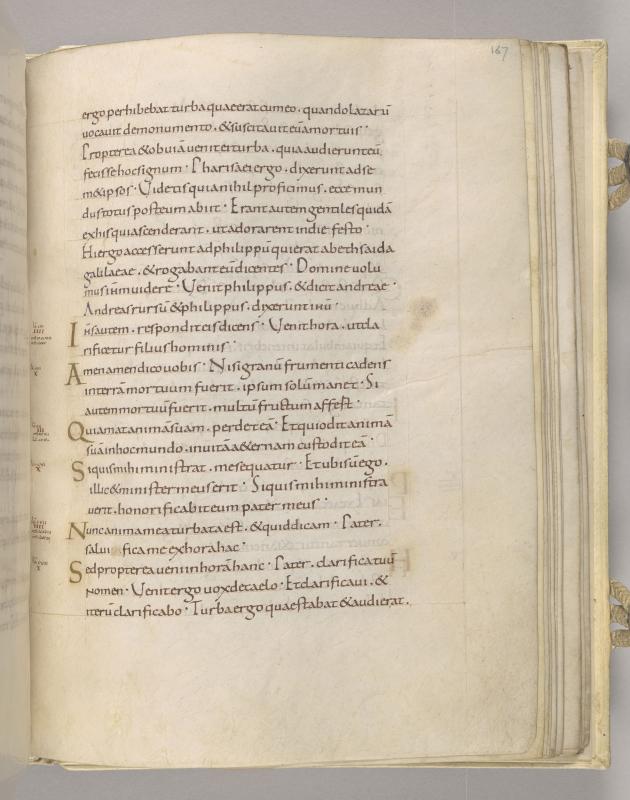 167
ergo perhibebat turba quae erat cum eo · quando lazarū
vocavit de monumento · & suscitavit eū a mortuis ·
Propterea & obviā venit ei turba · quia audierunt eū
fecisse hoc signum · Pharisaei ergo · dixerunt ad se
m& ipsos · Videtis quia nihil proficimus · ecce mun
dus totus post eum abiit · Erant autem gentiles quidā
ex his qui ascenderant · ut adorarent in die festo ·
Hi ergo accesserunt ad philippū qui erat a bethsaida
galilaeae · & rogabant eū dicentes · Domine volu
mus ihm videre · Venit philippus · & dicit andreae ·
Andreas rursū & philippus · dixerunt ihū ·
Ihs autem · respondit eis dicens · Venit hora · ut cla
rificetur filius hominis ·
Amen amen dico vobis · Nisi granū frumenti cadens
in terrā mortuum fuerit · ipsum solū manet · Si
autem mortuū fuerit · multū fructum affert ·
Qui amat animā suam · perdet eā · Et qui odit animā
suā in hoc mundo · in vitā aeternam custodit eā ·
Si quis mihi ministrat · me sequatur · Et ubi sū ego ·
illic & minister meus erit · Si quis mihi ministra
verit · honorificabit eum pater meus ·
Nunc anima mea turbata est · & quid dicam · Pater ·
salvi fica me ex hora hac ·
Sed propterea veni in horā hanc · Pater · clarifica tuū
nomen · Venit ergo vox de caelo · Et clarificavi · &
iterū clarificabo · Turba ergo quae stabat & audierat ·